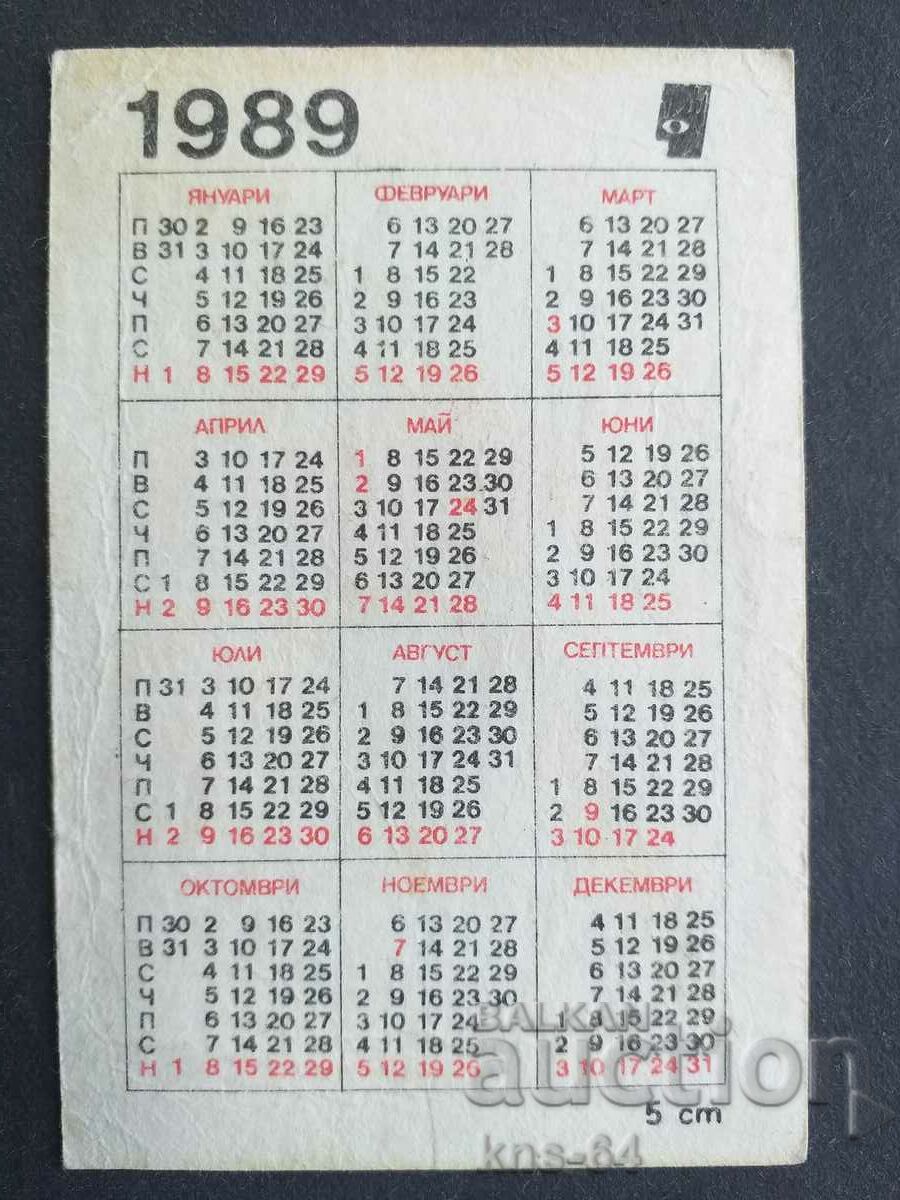 1989
ЯНУАРИ ФЕВРУАРИ МАРТ
П 30 2 9 16 23 6 13 20 27 6 13 20 27
В 31 3 10 17 24 7 14 21 28 7 14 21 28
С 4 11 18 25 1 8 15 22 1 8 15 22 29
Ч 5 12 19 26 2 9 16 23 2 9 16 23 30
П 6 13 20 27 3 10 17 24 3 10 17 24 31
С 7 14 21 28 4 11 18 25 4 11 18 25
Н 1 8 15 22 29 5 12 19 26 5 12 19 26
АПРИЛ МАЙ ЮНИ
П 3 10 17 24 1 8 15 22 29 5 12 19 26
В 4 11 18 25 2 9 16 23 30 6 13 20 27
С 5 12 19 26 3 10 17 24 31 7 14 21 28
Ч 6 13 20 27 4 11 18 25 1 8 15 22 29
П 7 14 21 28 5 12 19 26 2 9 16 23 30
С 1 8 15 22 29 6 13 20 27 3 10 17 24
Н 2 9 16 23 30 7 14 21 28 4 11 18 25
ЮЛИ АВГУСТ СЕПТЕМВРИ
П 31 3 10 17 24 7 14 21 28 4 11 18 25
В 4 11 18 25 1 8 15 22 29 5 12 19 26
С 5 12 19 26 2 9 16 23 30 6 13 20 27
Ч 6 13 20 27 3 10 17 24 31 7 14 21 28
П 7 14 21 28 4 11 18 25 1 8 15 22 29
С 1 8 15 22 29 5 12 19 26 2 9 16 23 30
Н 2 9 16 23 30 6 13 20 27 3 10 17 24
ОКТОМВРИ НОЕМВРИ ДЕКЕМВРИ
П 30 2 9 16 23 6 13 20 27 4 11 18 25
В 31 3 10 17 24 7 14 21 28 5 12 19 26
С 4 11 18 25 1 8 15 22 29 6 13 20 27
Ч 5 12 19 26 2 9 16 23 30 7 14 21 28
П 6 13 20 27 3 10 17 24 1 8 15 22 29
С 7 14 21 28 4 11 18 25 2 9 16 23 30
Н 1 8 15 22 29 5 12 19 26 3 10 17 24 31
BALKAN
auction
5 cm
kns-64